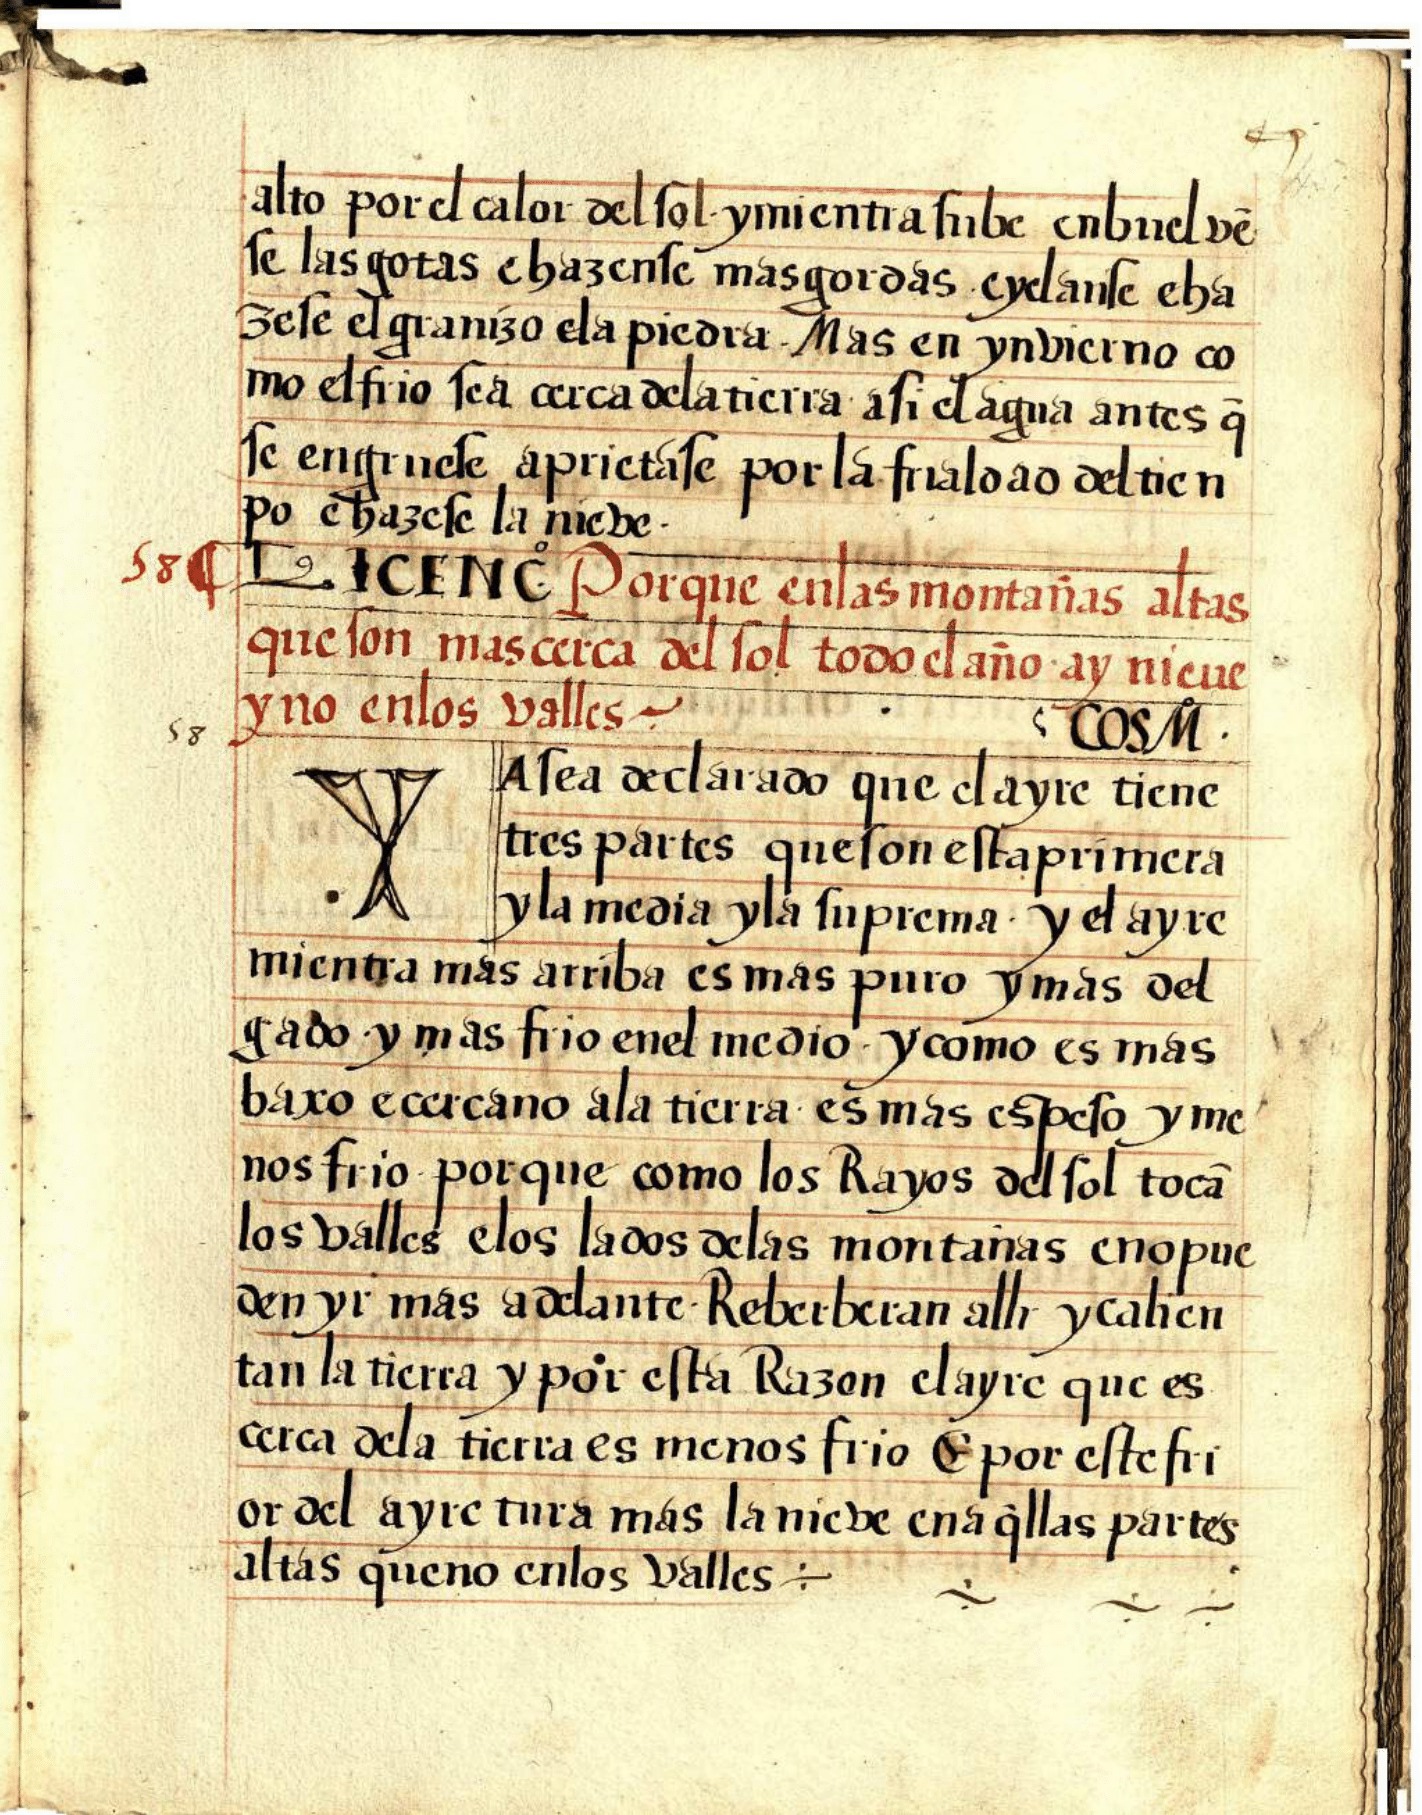 alto por el calor del sol · y mientra sube enbuelvē
se las gotas e hazense mas gordas · e yelanse e ha
zese el granizo e la piedra · Mas en ynvierno co
mo el frio sea cerca dela tierra · asi el agua antes q̄
se engruese aprietase por la frialdad del tien
po e hazese la nieve ·
58 ¶ LICENC̊ Porque en las montañas altas
que son mas cerca del sol todo el año · ay nieue
y no en los valles ~
COSM̊ ·
58
YA sea declarado que el ayre tiene
tres partes que son esta primera
y la media y la suprema · y el ayre
mientra mas arriba es mas puro y mas del
gado · y mas frio enel medio · y como es mas
baxo e cercano ala tierra · es mas espeso y me
nos frio · porque como los Rayos del sol tocā
los valles e los lados delas montañas e no pue
den yr mas adelante · Reberberan alli y calien
tan la tierra y por esta Razon el ayre que es
cerca dela tierra es menos frio E por este fri
or del ayre tura mas la nieve en aq̄llas partes
altas que no en los valles ÷